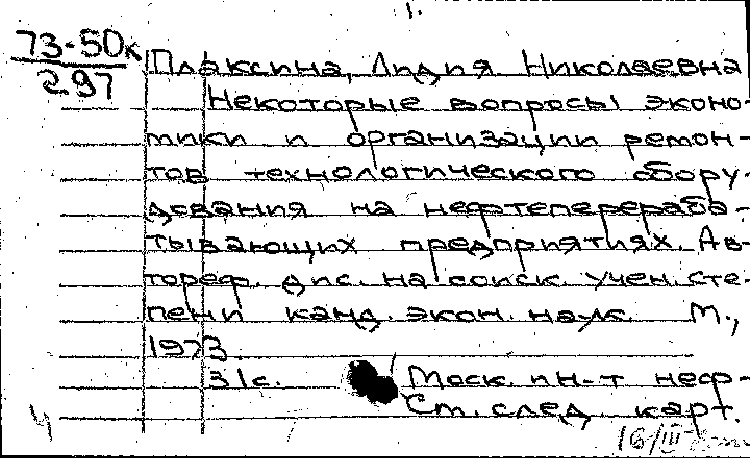 1.
73-50к
297
Плаксина, Лидия Николаевна
Некоторые вопросы эконо-
мики и организации ремон-
тов технологического обору-
дования на нефтеперераба-
тывающих предприятиях. Ав-
тореф. дис. на соиск. учен. сте-
пени канд. экон. наук. М.,
1973.
31с. Моск. ин-т неф-
Ст. след. карт.
4
16/III